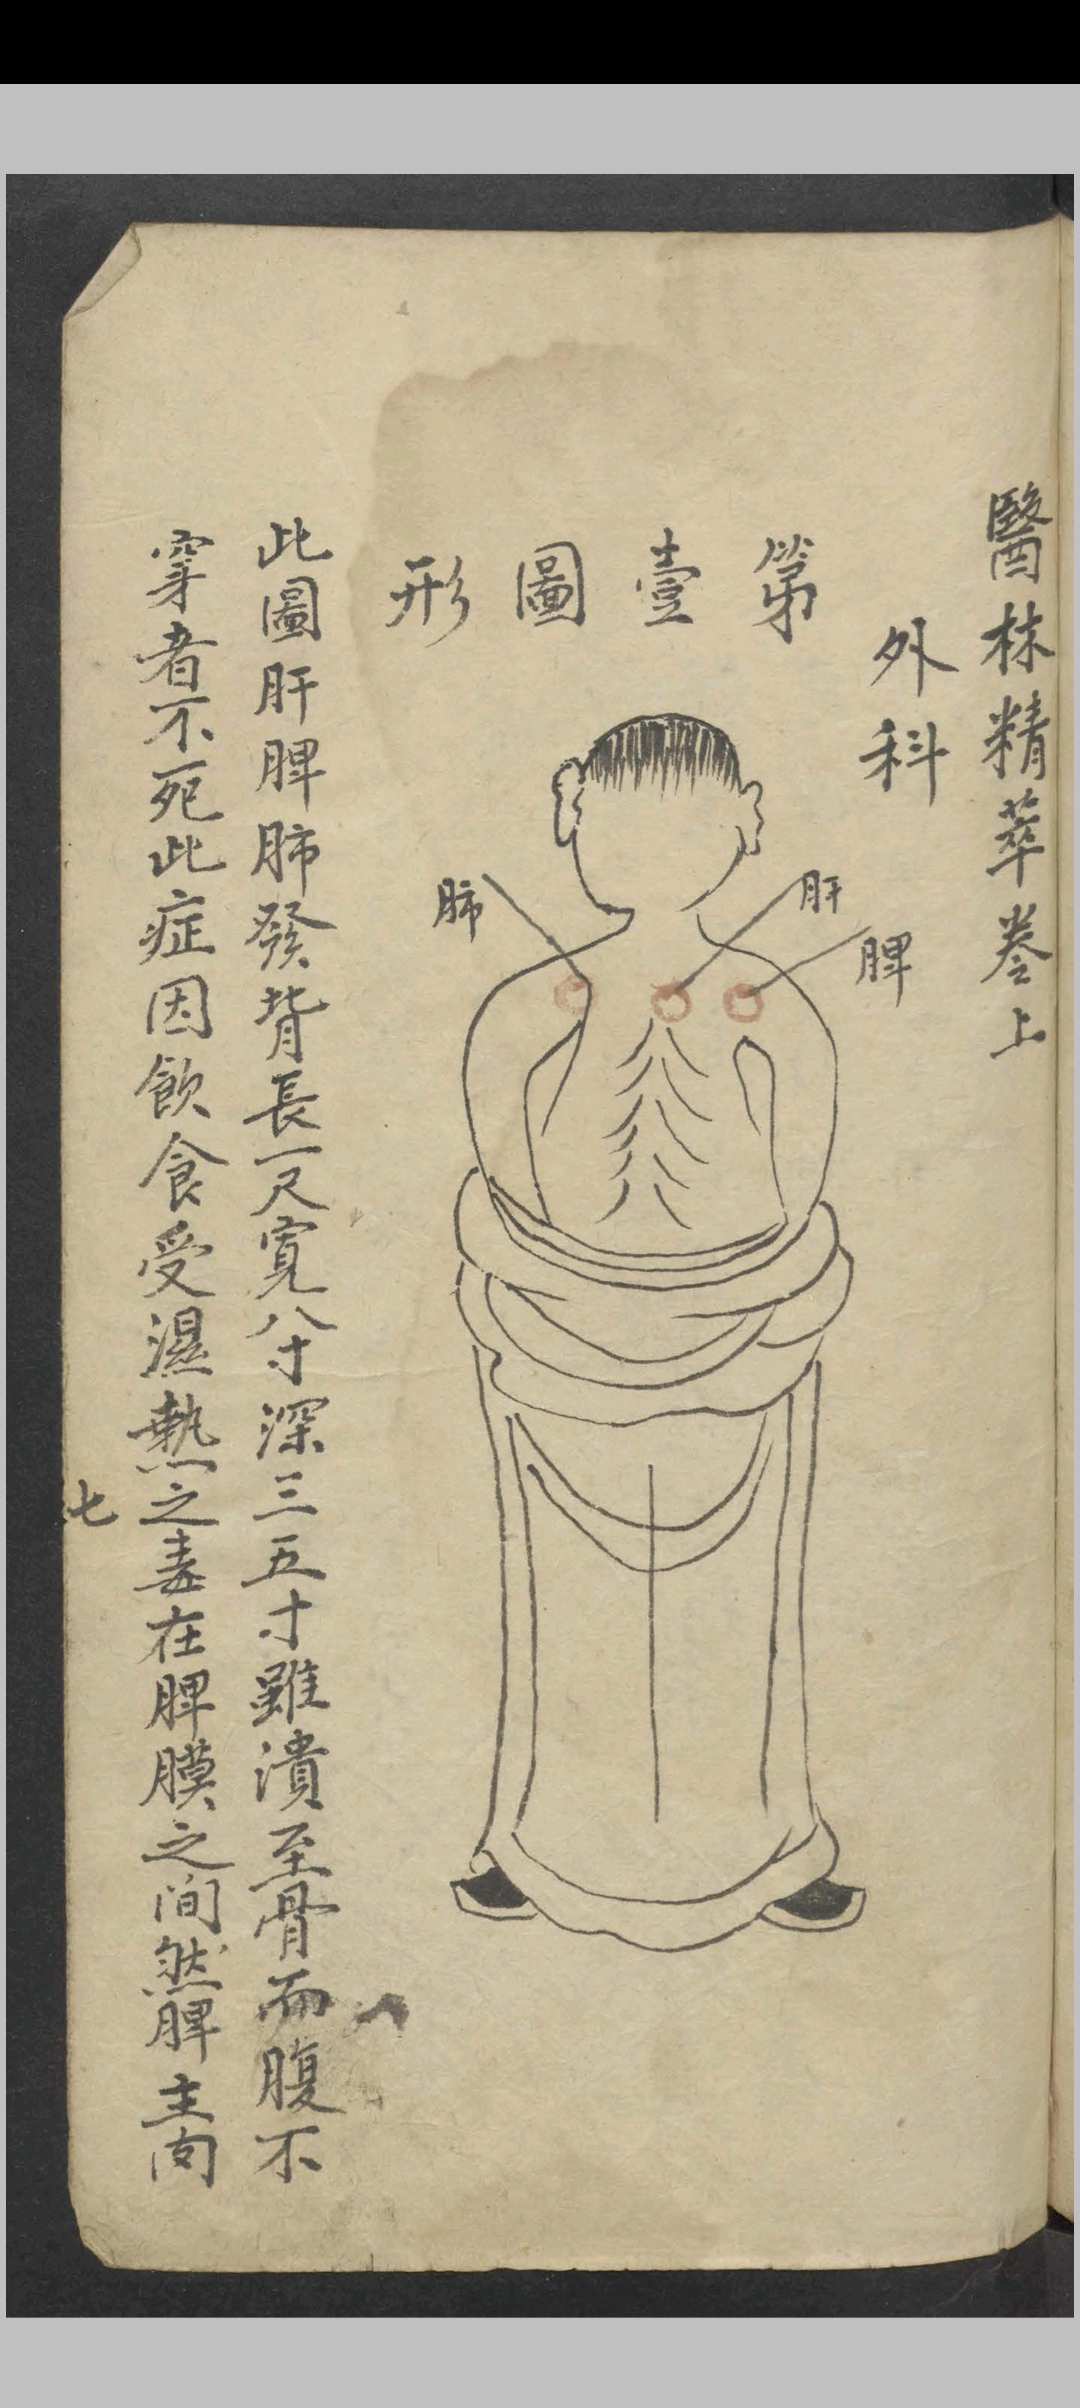 醫林精萃卷上
外科
第壹圖形
肝
脾
肺
此圖肝脾肺發背長一尺寬八寸深三五寸雖潰至骨而腹不
穿者不死此症因飲食受濕熱之毒在脾膜之間然脾主肉
七